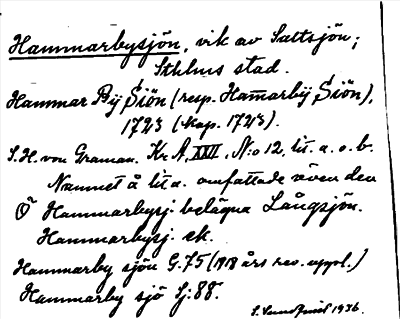 Hammarbysjön, vik av Saltsjön;
Sthlms stad.
Hammar Bÿ Siön (resp. Ham̄arbÿ Siön),
1723 (kop. 1723).
S. H. von Graman. Kr A, XXII, N:o 12, lit. a. o. b.
Namnet å lit a. omfattade även den
Ö Hammarbysj. belägna Långsjön.
Hammarbysj. ek.
Hammarby sjön G. 75 (1918 års rev. uppl.)
Hammarby sjö Sj: 88.
1936.